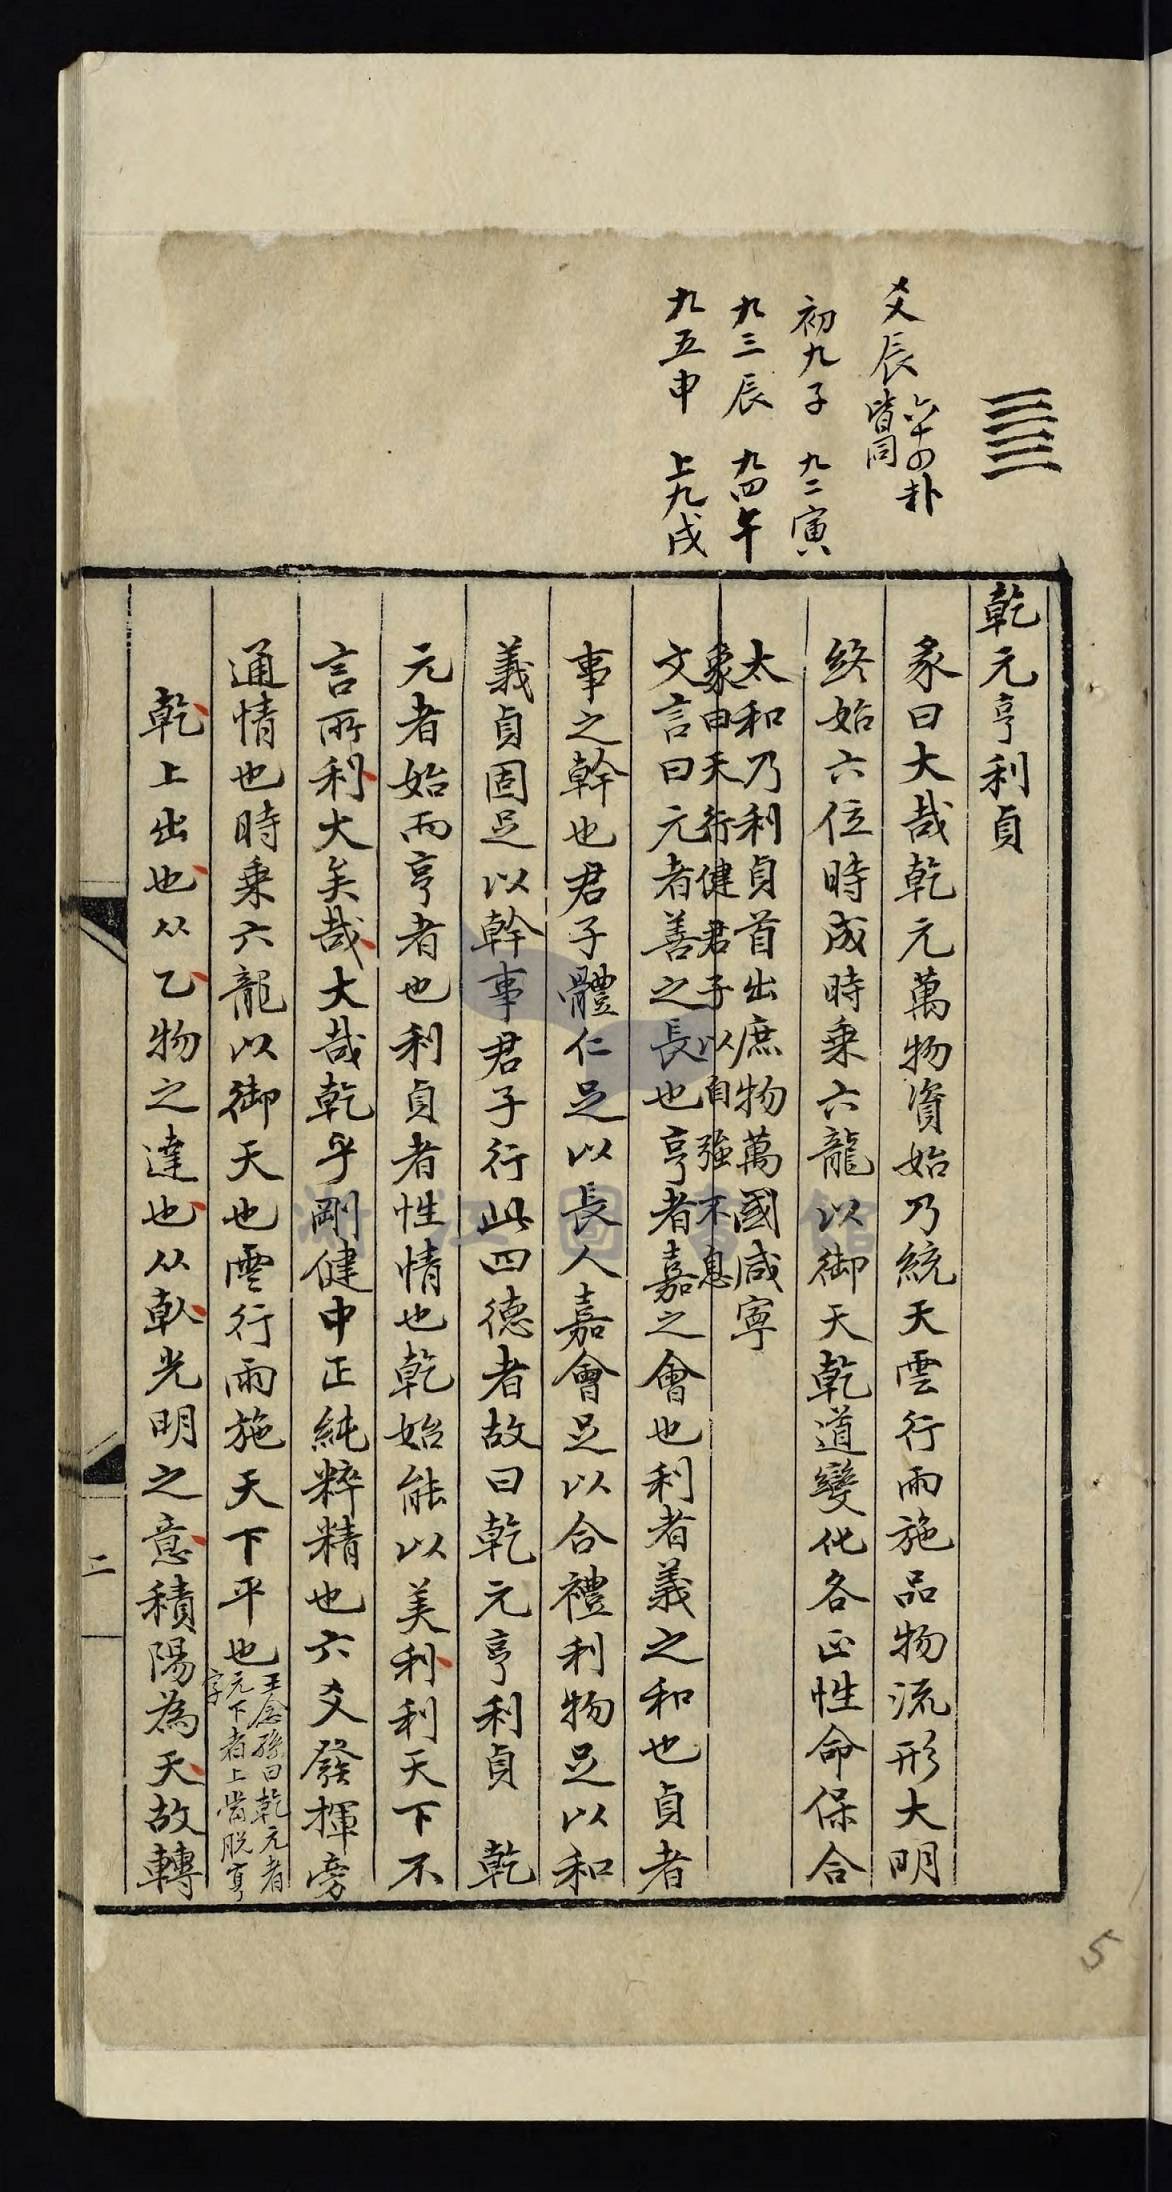 爻辰六十四卦皆同
初九子 九二寅
九三辰 九四午
九五申 上九戌
乾元亨利貞
彖曰大哉乾元萬物資始乃統天雲行雨施品物流形大明
終始六位時成時乘六龍以御天乾道變化各正性命保合
太和乃利貞首出庶物萬國咸寧
象曰天行健君子以自強不息
文言曰元者善之長也亨者嘉之會也利者義之和也貞者
事之幹也君子體仁足以長人嘉會足以合禮利物足以和
義貞固足以幹事君子行此四德者故曰乾元亨利貞 乾
元者始而亨者也利貞者性情也乾始能以美利利天下不
言所利大矣哉大哉乾乎剛健中正純粹精也六爻發揮旁
通情也時乘六龍以御天也雲行雨施天下平也王念孫曰乾元者元下者上當脫亨字
乾上出也从乙物之達也从倝光明之意積陽為天故轉
二
5
浙江圖書館